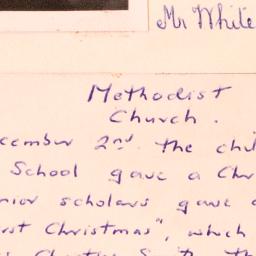 Mr White
Methodist
Church.
cember 2nd. the chil
School gave a Chr
nior scholars gave
rst Christmas", which